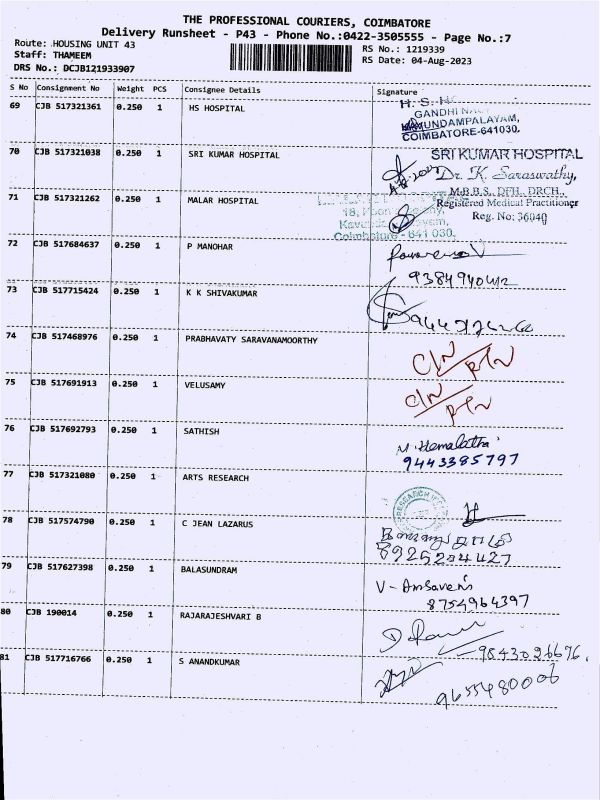 THE PROFESSIONAL COURIERS, COIMBATORE
Delivery Runsheet - P43 - Phone No.:0422-3505555 - Page No.:7
Route: HOUSING UNIT 43
RS No.: 1219339
Staff: THAMEEM
RS Date: 04-Aug-2023
DRS No.: DCJB121933907
S No Consignment No Weight PCS Consignee Details Signature
69 CJB 517321361 0.250 1 HS HOSPITAL
H. S.
GANDHI
UNDAMPALAYAM,
COIMBATORE-641030.
70 CJB 517321038 0.250 1 SRI KUMAR HOSPITAL
SRI KUMAR HOSPITAL
Dr. K. Saraswathy,
M.B.B.S., DFH., DRCH.,
Registered Medical Practitioner
Reg. No: 36040
71 CJB 517321262 0.250 1 MALAR HOSPITAL
18,
Coimbatore - 641 030.
72 CJB 517684637 0.250 1 P MANOHAR
73 CJB 517715424 0.250 1 K K SHIVAKUMAR
74 CJB 517468976 0.250 1 PRABHAVATY SARAVANAMOORTHY
75 CJB 517691913 0.250 1 VELUSAMY
76 CJB 517692793 0.250 1 SATHISH
M. Hemalatha
9443385797
77 CJB 517321080 0.250 1 ARTS RESEARCH
RESEARCH
78 CJB 517574790 0.250 1 C JEAN LAZARUS
8925234427
79 CJB 517627398 0.250 1 BALASUNDRAM
8754964397
80 CJB 190014 0.250 1 RAJARAJESHVARI B
9843026676.
81 CJB 517716766 0.250 1 S ANANDKUMAR
9655480006